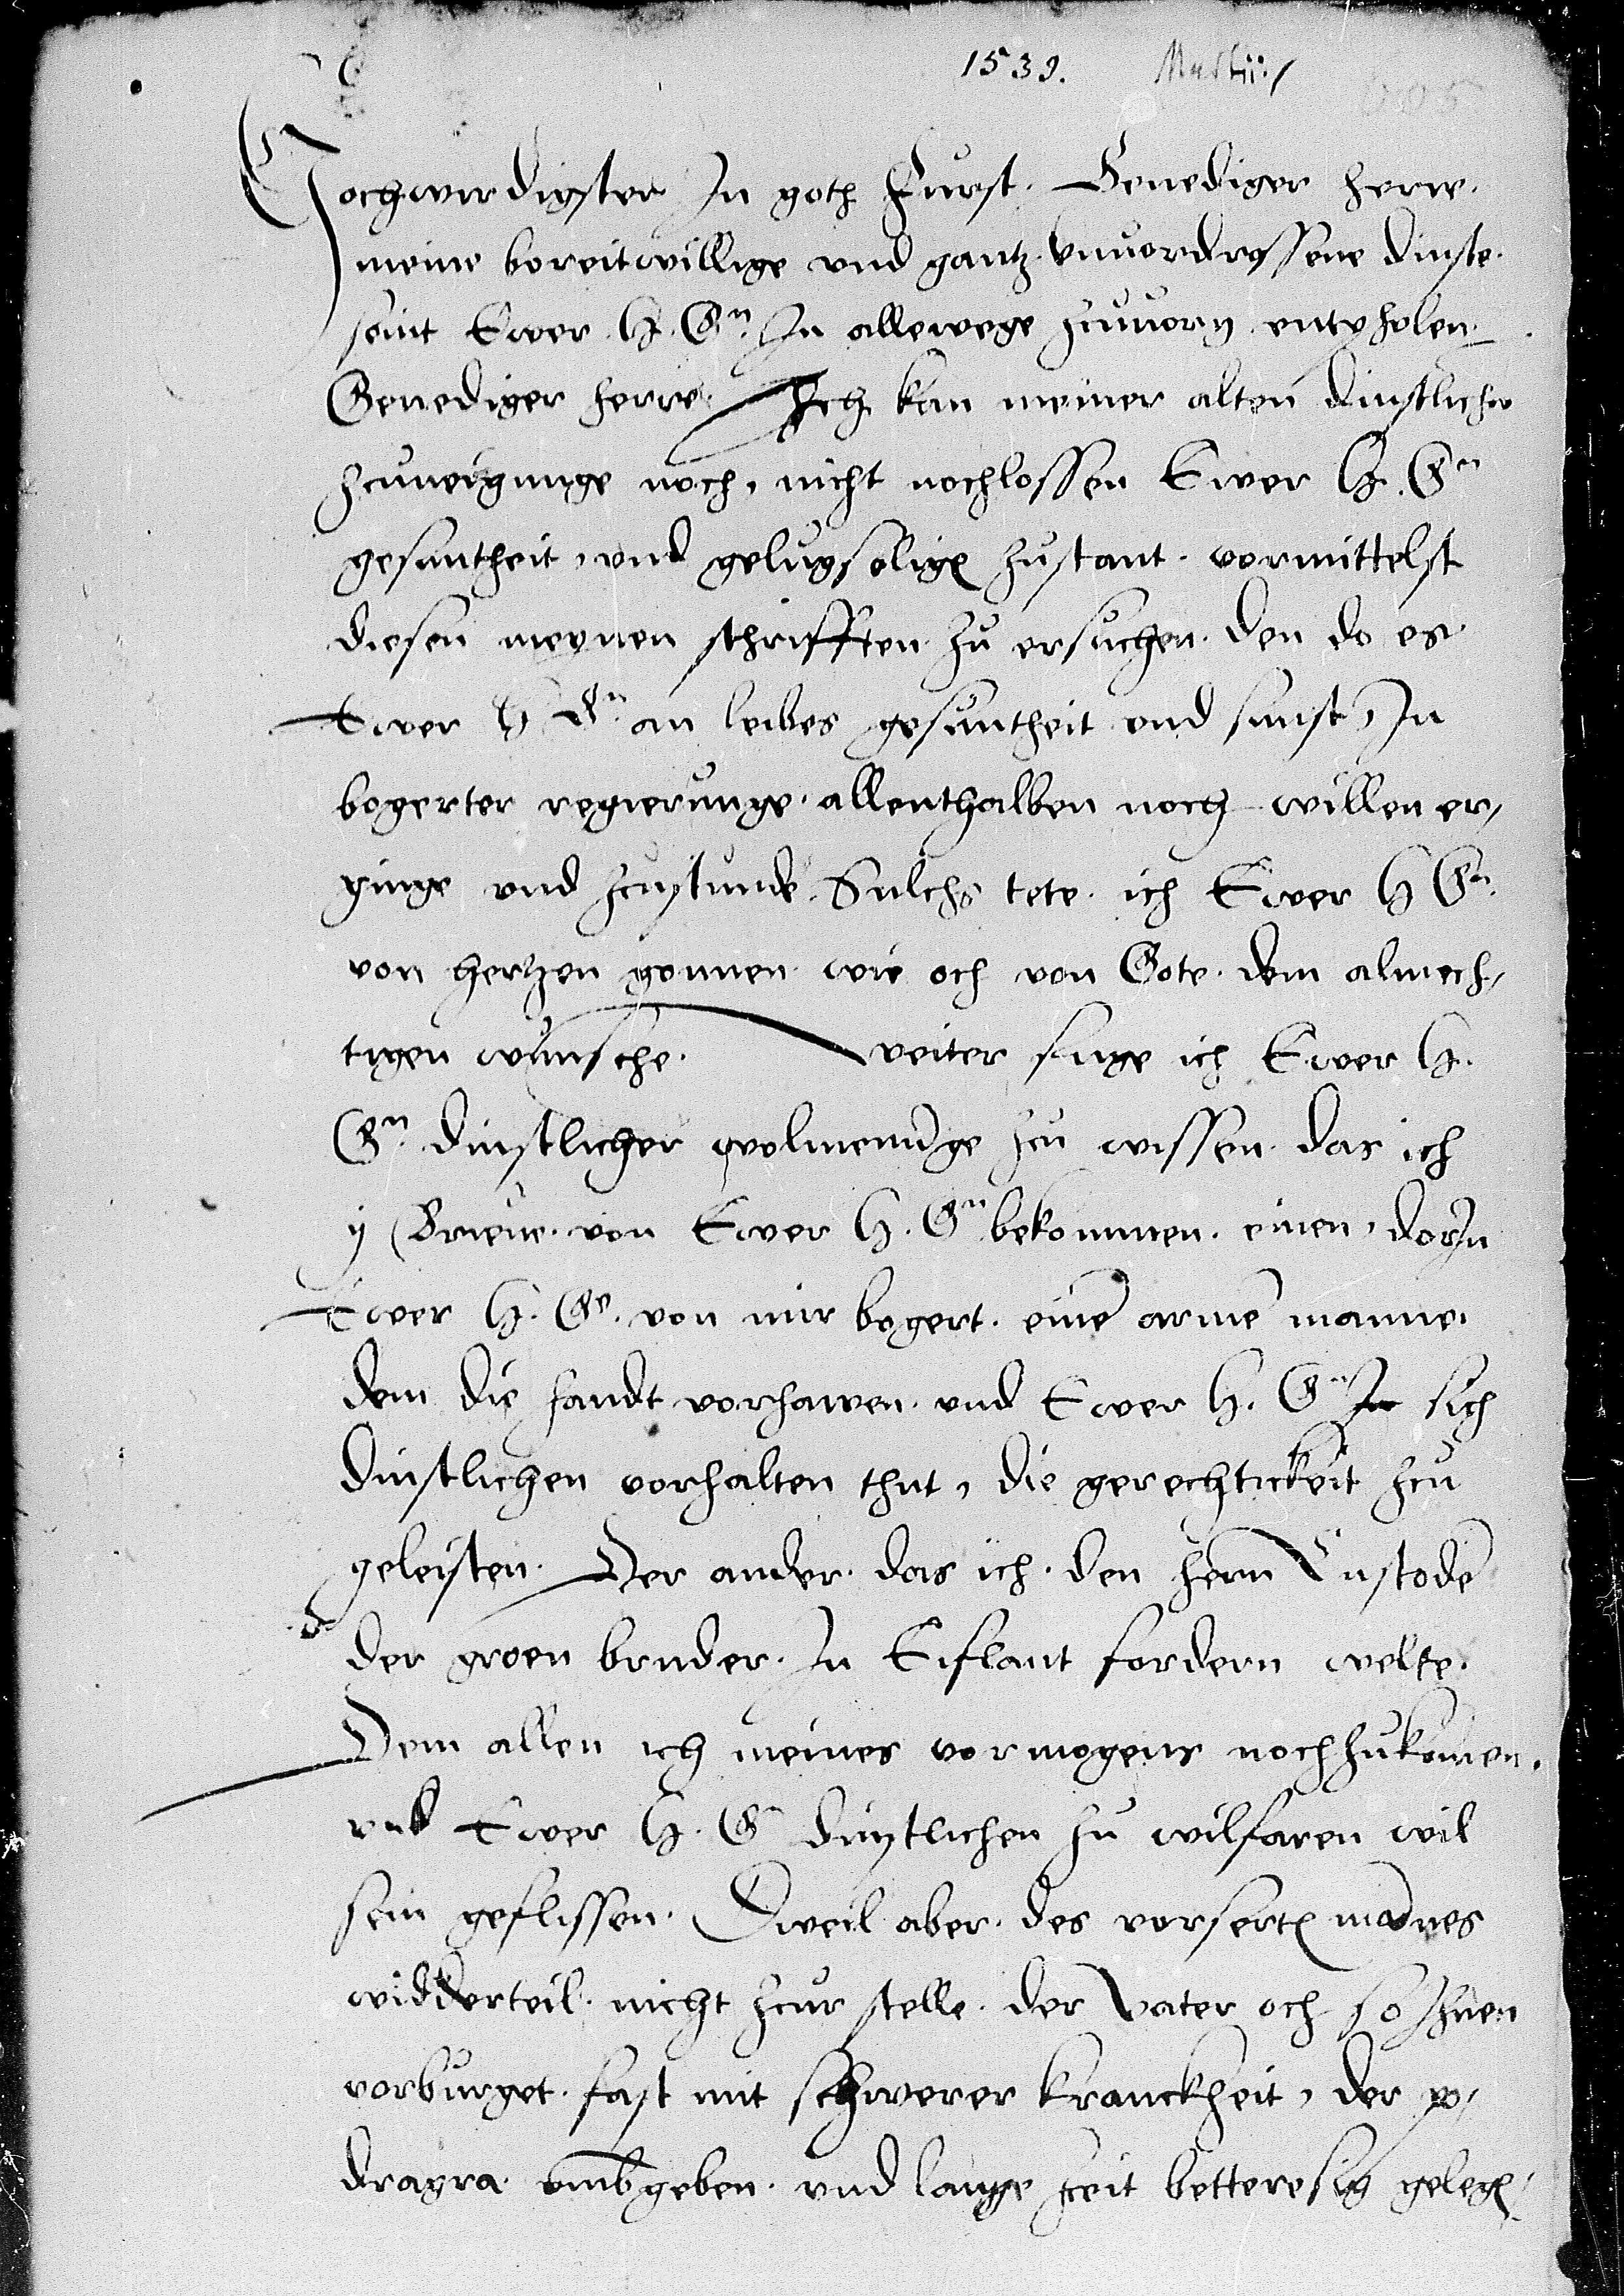 1539.
Hochwirdigster In goth Furst. Genediger herre.
meine bereitwillige vnd gantz vnuordrossene dinste.
seint Ewer H. Gn. In allewege zuuorn entpholen.
Genediger herre. Ich kan meiner alten dinstlichen
zcuneigunge noch, nicht nochlossen Ewer H. Gn
gesuntheit, vnd gelugseligen zustant. vormittelst
diesen meynen schrifften zu ersuchen. den do es
Ewer H Gn. an leibes gesuntheit vnd sunst, In
begerter regierunge. allenthalben noch willen er,
ginge vnd zcustunde. Sulchs tete. ich Ewer H Gn.
von hertzen gonnen. wie och von Gote. dem almech,
tigen wunsche. weiter fuge ich Ewer H.
Gn. dinstlicher wolmenunge zcu wissen. das ich
ij Brieue. von Ewer H. Gn bekommen. einen, dorIn
Ewer H. Gn. von mir begert. eine arme manne.
dem die handt vorhawen. vnd Ewer H. Gn In sich
dinstlichen vorhalten thut, die gerechtickeit zcu
geleisten. Der ander. das ich. den hern Custode
der groen bruder. In Eiflant fordern welte.
Dem allen ich meines vormogens nochzukomen.
vnd Ewer H. G dinstlichen zu wilfaren wil
sein geflissen. Dweil aber. des vorserten mannes
widderteil. nicht zcur stelle. der Vater och so Ihnen
vorburget. fast mit schwerer kranckheit, der po,
dragra vmbgeben. vnd lange zceit betteresig gelegen,